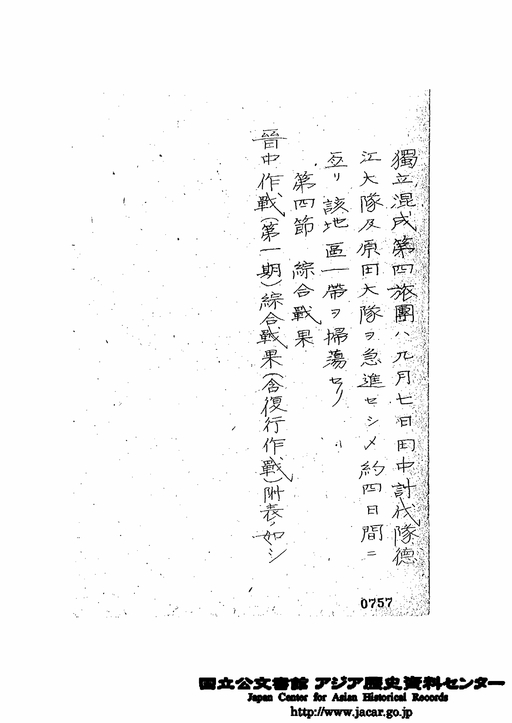 獨立混成第四旅團ハ九月七日田中討伐隊德
江大隊及原田大隊ヲ急進セシメ約四日間ニ
亙リ該地區一帶ヲ掃蕩セリ
第四節 綜合戰果
晉中作戰(第一期)綜合戰果(含復行作戰)附表ノ如シ
0757
国立公文書館 アジア歴史資料センター
Japan Center for Asian Historical Records
http://www.jacar.go.jp